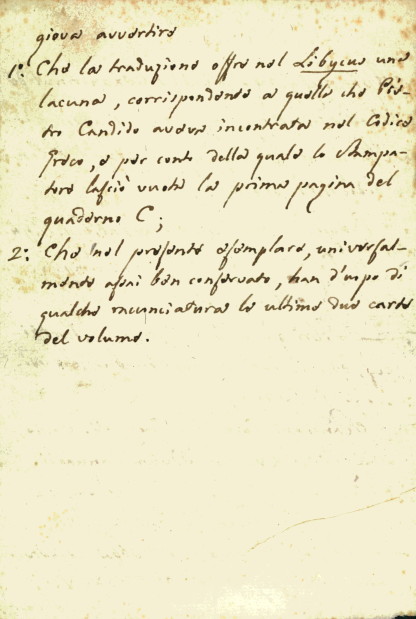 giova avvertire
1º. Che la traduzione offre nel Libycus una
lacuna, corrispondente a quella che Pie-
tro Candido aveva incontrata nel Codice
greco, e per conto della quale lo stampa-
tore lasciò vuota la prima pagina del
quaderno C;
2º: Che nel presente esemplare, universal-
mente assai ben conservato, han d'uopo di
qualche racconciatura le ultime due carte
del volume.